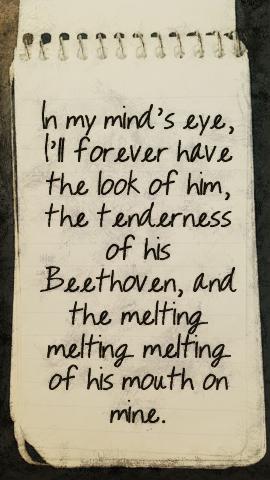 In my mind's eye,
I'll forever have
the look of him,
the tenderness
of his
Beethoven, and
the melting
melting melting
of his mouth on
mine.